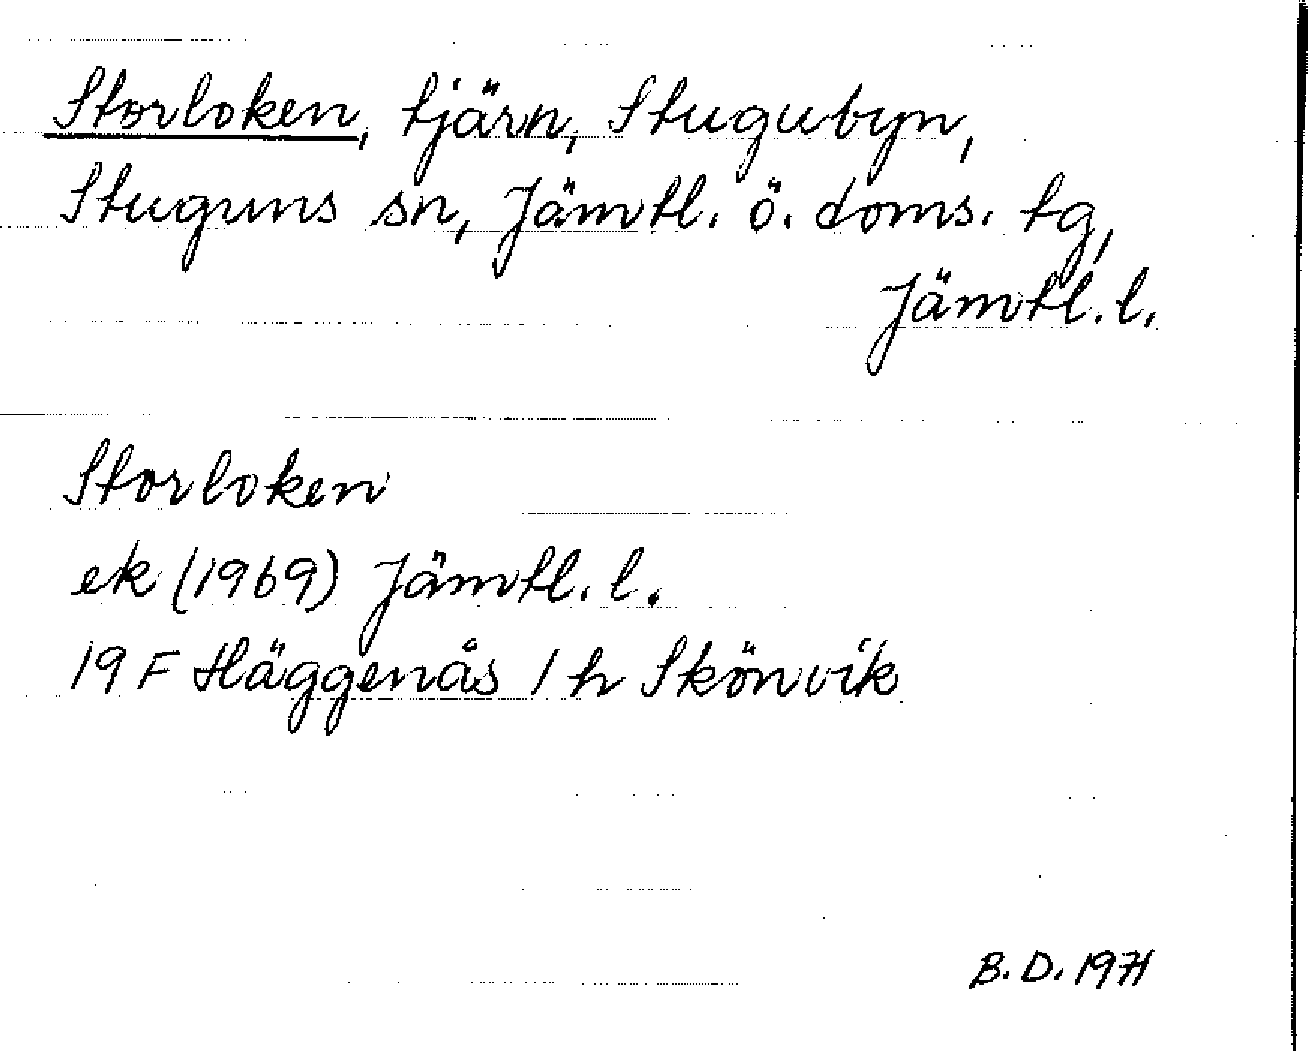 Storloken, tjärn, Stugubyn,
Stuguns sn, Jämtl. ö. doms. tg,
Jämtl. l.
Storloken
ek (1969) Jämtl. l.
19 F Häggenås 1 h Skönvik
B. D. 1971